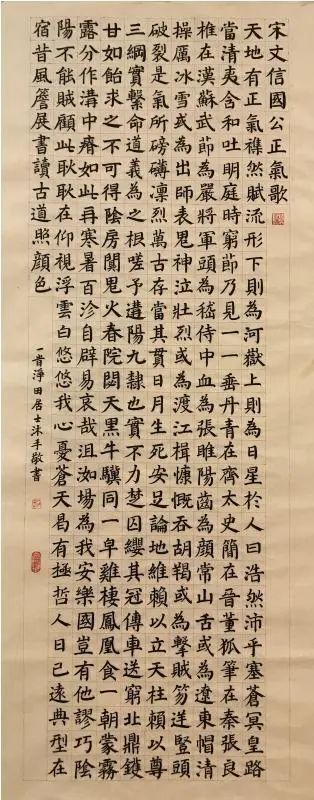 宋文信國公正氣歌
天地有正氣襍然賦流形下則為河嶽上則為日星於人曰浩然沛乎塞蒼冥皇路
當清夷含和吐明庭時窮節乃見一一垂丹青在齊太史簡在晉董狐筆在秦張良
椎在漢蘇武節為嚴將軍頭為嵇侍中血為張睢陽齒為顏常山舌或為遼東帽清
操厲冰雪或為出師表鬼神泣壯烈或為渡江楫慷慨吞胡羯或為擊賊笏逆豎頭
破裂是氣所磅礴凜烈萬古存當其貫日月生死安足論地維賴以立天柱賴以尊
三綱實繫命道義為之根嗟予遘陽九隸也實不力楚囚纓其冠傳車送窮北鼎鑊
甘如飴求之不可得陰房闃鬼火春院閟天黑牛驥同一皁雞棲鳳凰食一朝蒙霧
露分作溝中瘠如此再寒暑百沴自辟易哀哉沮洳場為我安樂國豈有他謬巧陰
陽不能賊顧此耿耿在仰視浮雲白悠悠我心憂蒼天曷有極哲人日已遠典型在
宿昔風簷展書讀古道照顏色
淨田居士沐手敬書